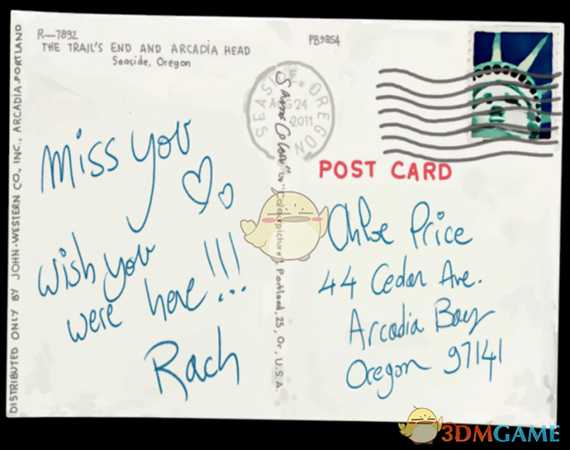 R-7892
PB9854
THE TRAIL'S END AND ARCADIA HEAD
Seaside, Oregon
DISTRIBUTED ONLY BY JOHN-WESTERN CO., INC., ARCADIA-PORTLAND
miss you
wish you
were here!!!
Rach
SEASIDE, OREGON
AUG 24
2011
Portland, 25, Or., U.S.A.
POST CARD
Chloe Price
44 Cedar Ave.
Arcadia Bay
Oregon 97141
3DMGAME